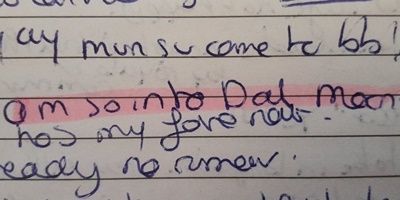 ay mun su come to bb!
am so into Dat man
has my love now.
eady no rumour.